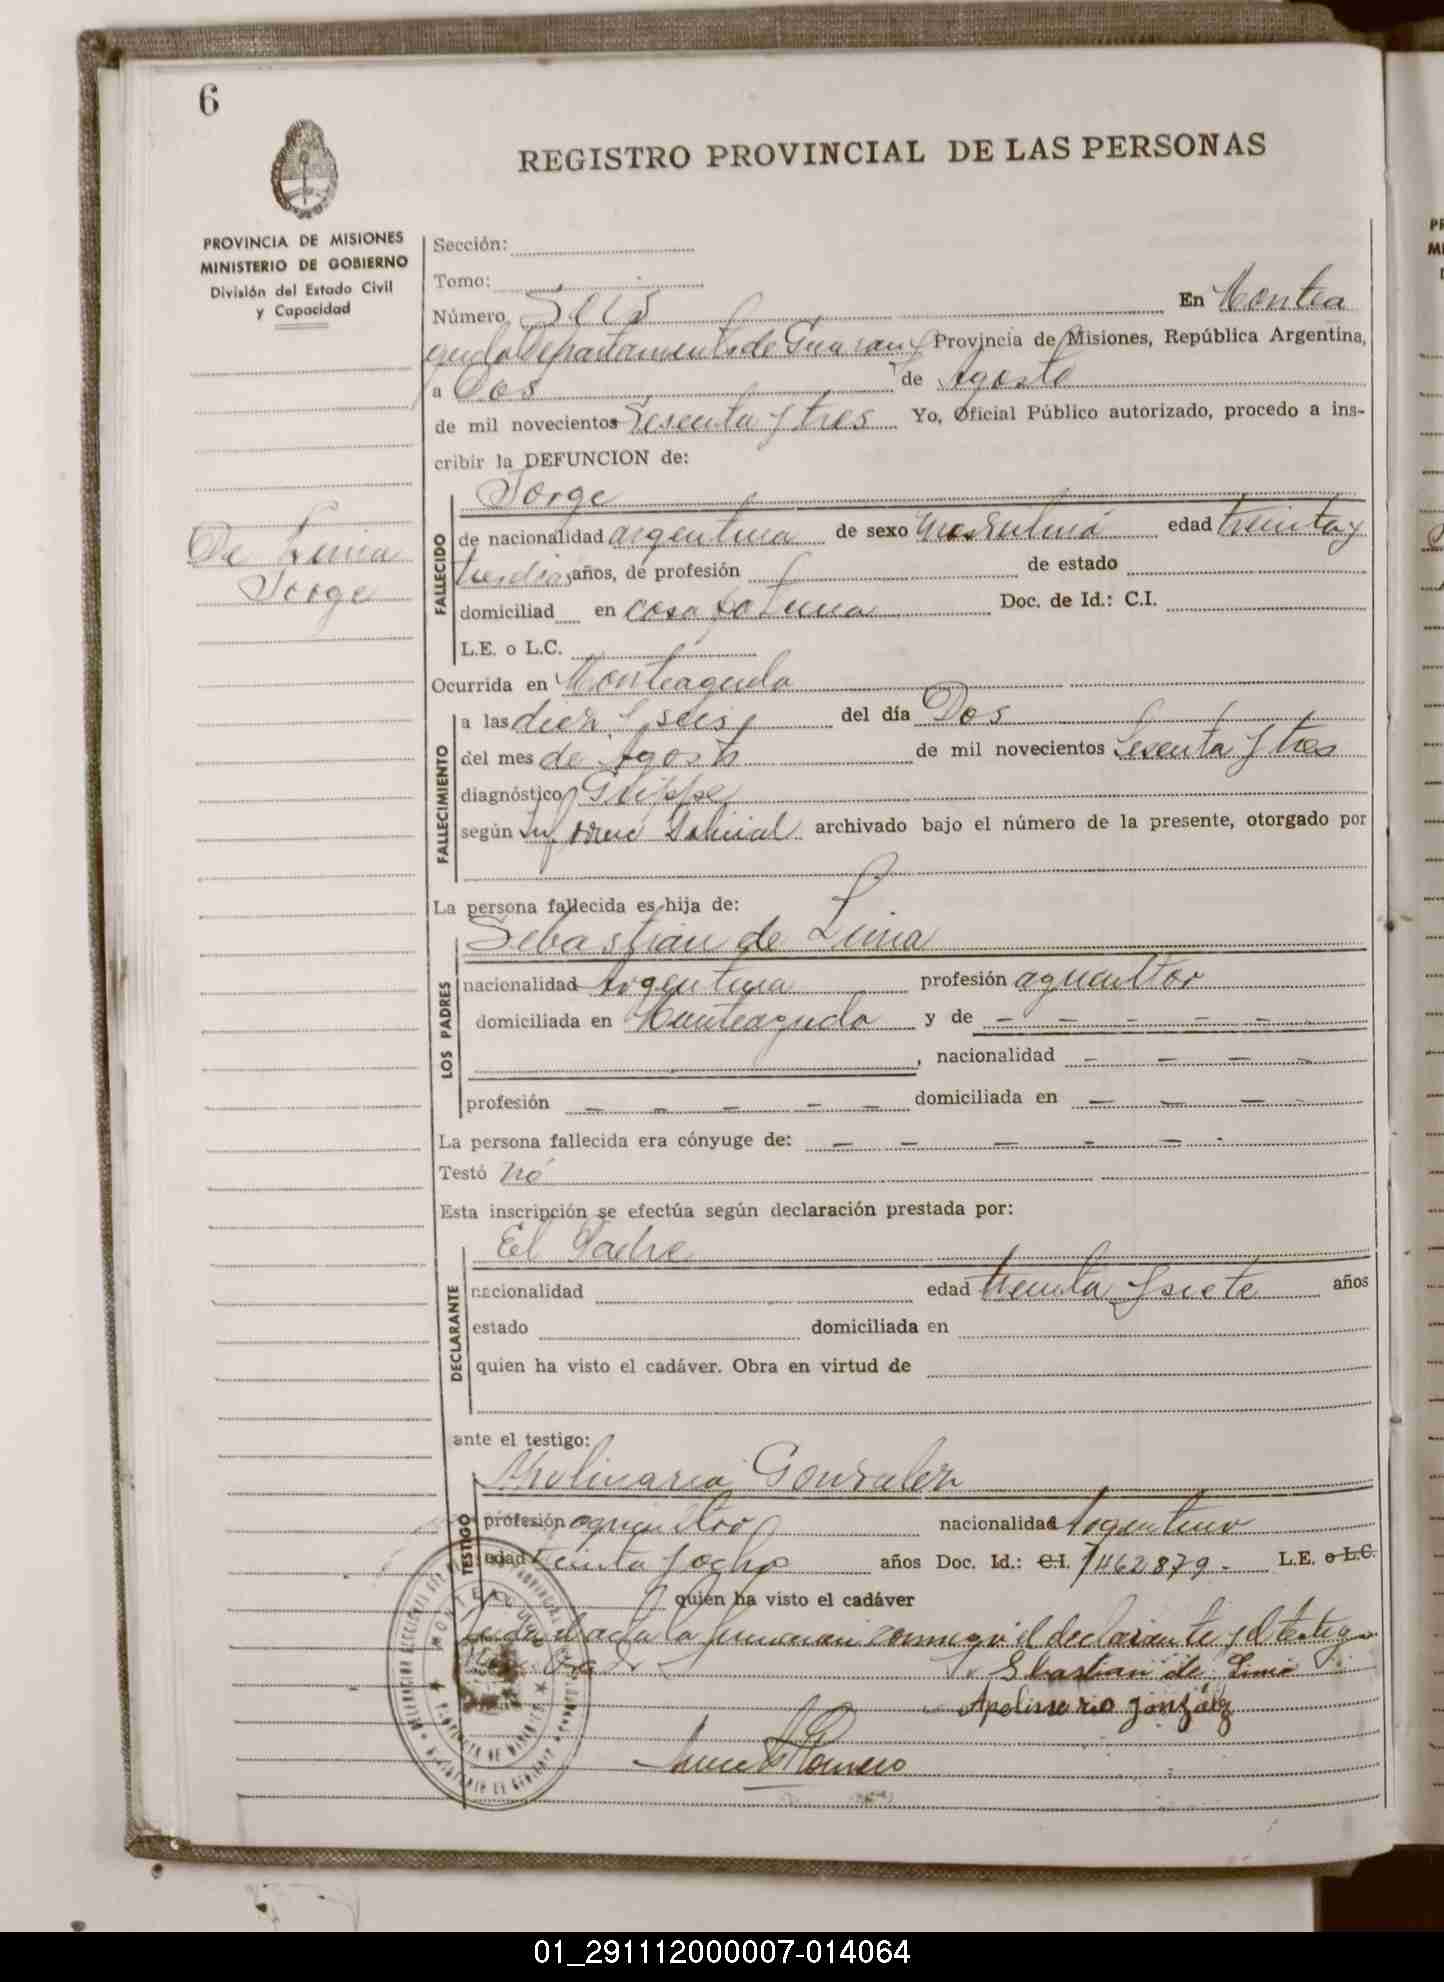 6
REGISTRO PROVINCIAL DE LAS PERSONAS
PROVINCIA DE MISIONES
MINISTERIO DE GOBIERNO
División del Estado Civil
y Capacidad
Sección:
Tomo:
Número Seis En Montea
gudo Departamento de Guaraní Provincia de Misiones, República Argentina,
a Dos de Agosto
de mil novecientos Sesenta y tres Yo, Oficial Público autorizado, procedo a ins-
cribir la DEFUNCION de:
De Lima
Jorge
FALLECIDO
Jorge
de nacionalidad argentina de sexo masculino edad treinta y
tres dias años, de profesión de estado
domiciliad en casa paterna Doc. de Id.: C.I.
L.E. o L.C.
Ocurrida en Monteagudo
FALLECIMIENTO
a las diez y seis del día Dos
del mes de Agosto de mil novecientos Sesenta y tres
diagnóstico Grippe
según Informe Policial archivado bajo el número de la presente, otorgado por
La persona fallecida es hija de:
LOS PADRES
Sebastian de Lima
nacionalidad Argentina profesión agricultor
domiciliada en Monteagudo y de - - - - -
, nacionalidad - - - -
profesión - - - - - domiciliada en - - - -
La persona fallecida era cónyuge de: - - - - - -
Testó no
Esta inscripción se efectúa según declaración prestada por:
DECLARANTE
El Padre
nacionalidad edad treinta y siete años
estado domiciliada en
quien ha visto el cadáver. Obra en virtud de
ante el testigo:
TESTIGO
Gonzalez
profesión agricultor nacionalidad Argentino
edad treinta y ocho años Doc. Id.: C.I. 7462879- L.E. o L.C.
quien ha visto el cadáver
acta la firman conmigo el declarante y el testigo
Sebastian de Lima
Apolinario González
Romero
01_291112000007-014064